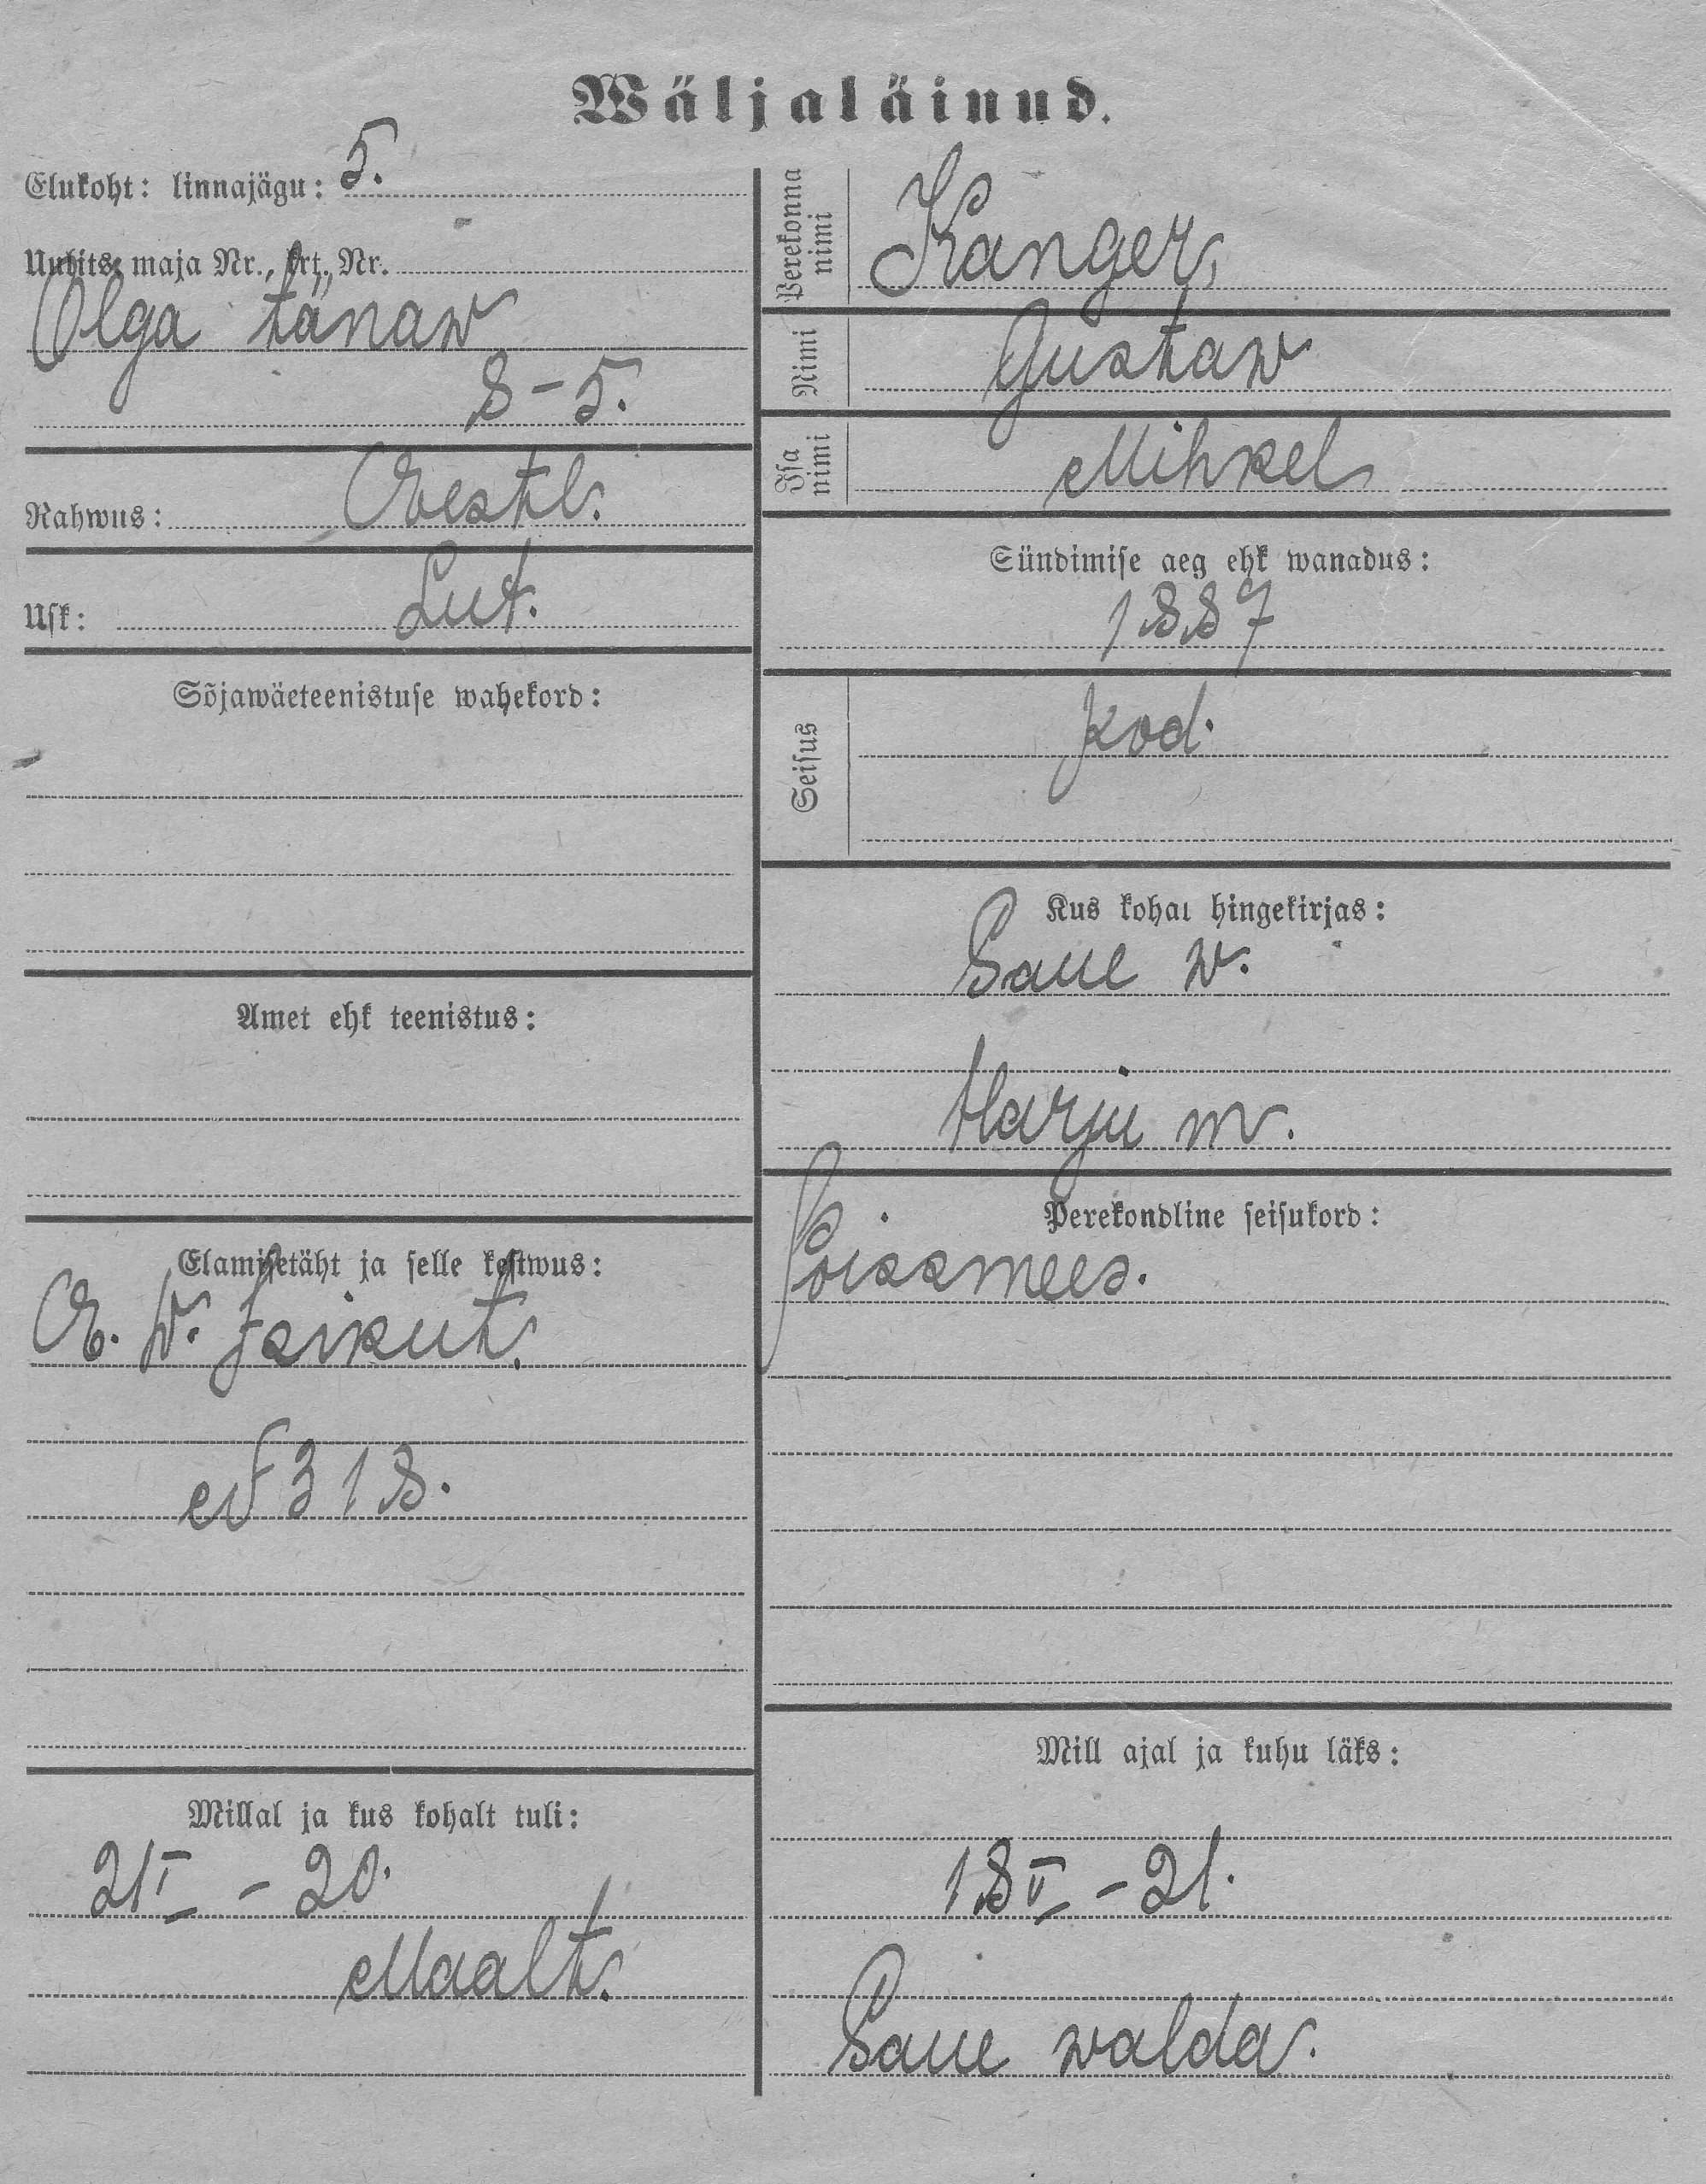 Wäljaläinud.
Elukoht: linnajägu: 5.
Uulits, maja Nr., krt. Nr.
Olga tänaw
8-5.
Rahwus: Eestl.
Usk: Lut.
Sõjawäeteenistuse wahekord:
Amet ehk teenistus:
Elamisetäht ja selle kestwus:
E. W. Isikut.
№ 318.
Millal ja kus kohalt tuli:
21 I - 20.
Maalt.
Perekonna nimi
Kanger,
Nimi
Gustaw
Isa nimi
Mihkel
Sündimise aeg ehk wanadus:
1887
Seisus
kod.
Kus kohal hingekirjas:
Saue w.
Harju m.
Perekondline seisukord:
Poissmees.
Mill ajal ja kuhu läks:
18 V - 21.
Saue walda.